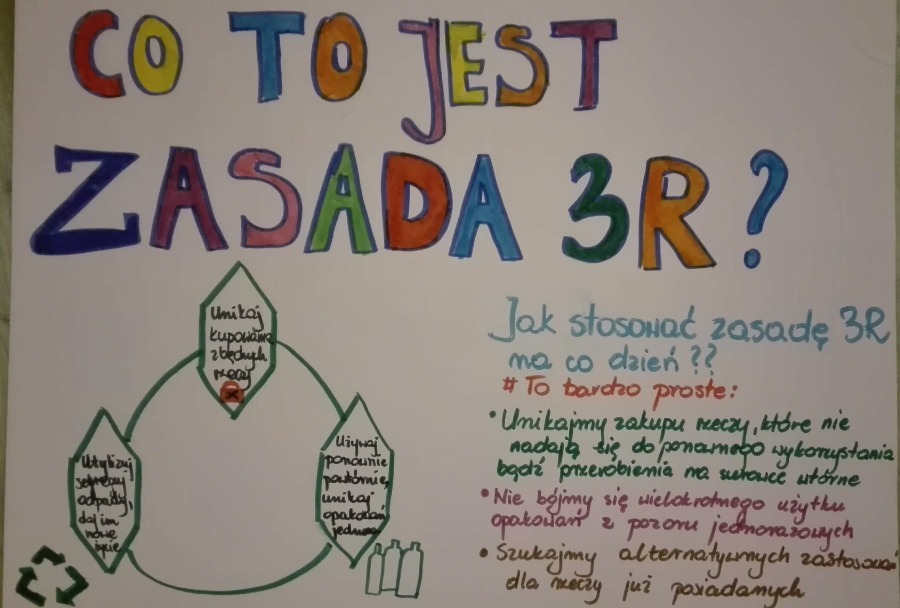 CO TO JEST
ZASADA 3R?
Unikaj
kupowania
zbędnych
rzeczy
Używaj
ponownie
unikaj
opakowań
odpady,
daj im
nowe
życie
Jak stosować zasadę 3R
na co dzień??
# To bardzo proste:
• Unikajmy zakupu rzeczy, które nie
nadają się do ponownego wykorzystania
bądź przerobienia na surowce wtórne
• Nie bójmy się wielokrotnego użytku
opakowań z pozoru jednorazowych
• Szukajmy alternatywnych zastosowań
dla rzeczy już posiadanych